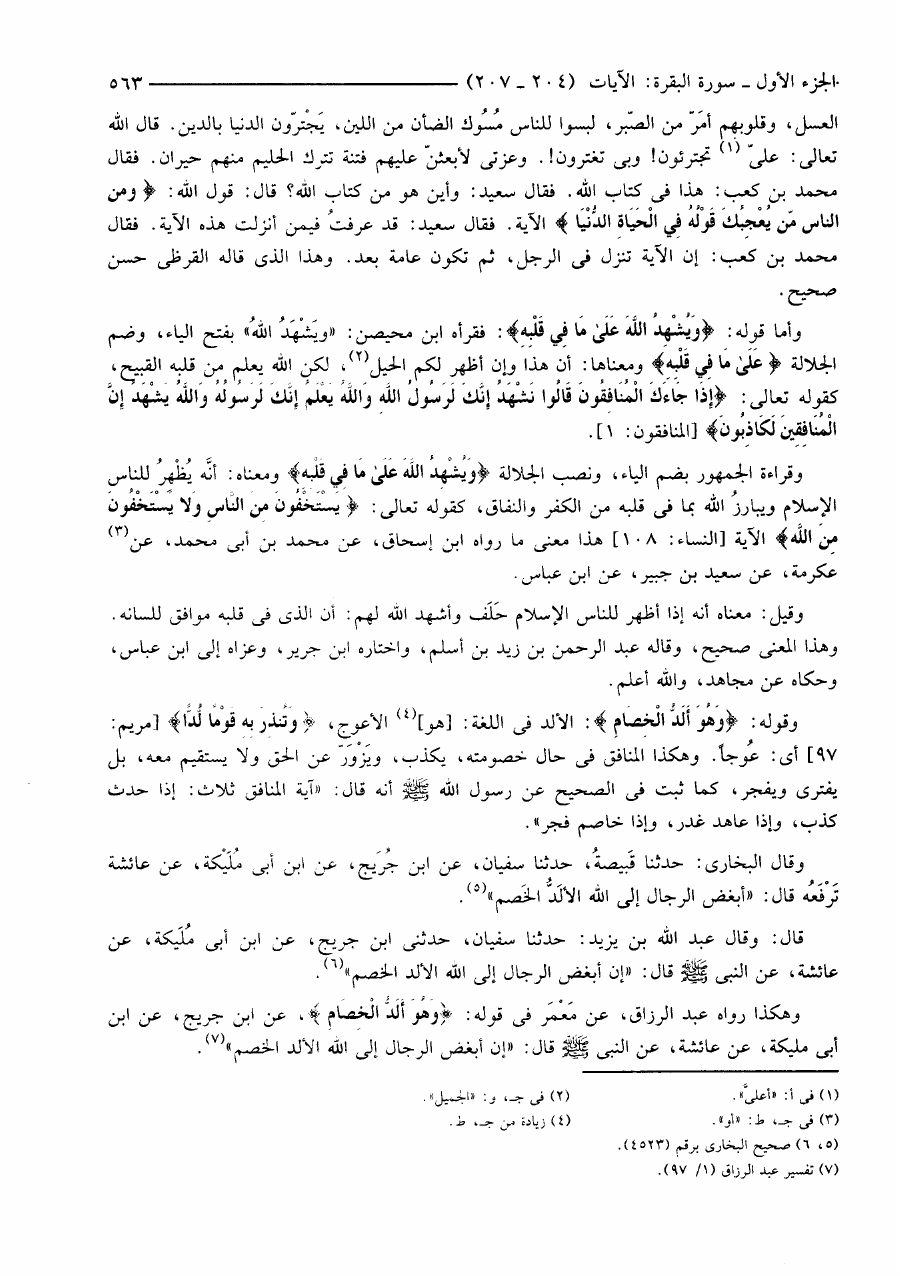 الجزء الأول ـ سورة البقرة: الآيات (٢٠٤ ـ ٢٠٧) ــــــــــــــــــــ ٥٦٣
العسل، وقلوبهم أمَرّ من الصّبر، لبسوا للناس مُسُوك الضأن من اللين، يَجْترّون الدنيا بالدين. قال الله
تعالى: علىّ (١) تجترئون! وبى تغترون!. وعزتى لأبعثنّ عليهم فتنة تترك الحليم منهم حيران. فقال
محمد بن كعب: هذا فى كتاب الله. فقال سعيد: وأين هو من كتاب الله؟ قال: قول الله: ﴿ ومن
الناس مَن يُعْجِبُكَ قَوْلُهُ فِي الْحَيَاةِ الدُّنْيَا ﴾ الآية. فقال سعيد: قد عرفتُ فيمن أنزلت هذه الآية. فقال
محمد بن كعب: إن الآية تنزل فى الرجل، ثم تكون عامة بعد. وهذا الذى قاله القرظى حسن
صحيح.
وأما قوله: ﴿وَيُشْهِدُ اللَّهَ عَلَىٰ مَا فِي قَلْبِهِ﴾: فقرأه ابن محيصن: «ويَشْهَدُ اللهُ» بفتح الياء، وضم
الجلالة ﴿ عَلَىٰ مَا فِي قَلْبِهِ﴾ ومعناها: أن هذا وإن أظهر لكم الحيل(٢)، لكن الله يعلم من قلبه القبيح،
كقوله تعالى: ﴿إِذَا جَاءَكَ الْمُنَافِقُونَ قَالُوا نَشْهَدُ إِنَّكَ لَرَسُولُ اللَّهِ وَاللَّهُ يَعْلَمُ إِنَّكَ لَرَسُولُهُ وَاللَّهُ يَشْهَدُ إِنَّ
الْمُنَافِقِينَ لَكَاذِبُونَ﴾ [المنافقون: ١].
وقراءة الجمهور بضم الياء، ونصب الجلالة ﴿وَيُشْهِدُ اللَّهَ عَلَىٰ مَا فِي قَلْبِهِ﴾ ومعناه: أنَّه يُظْهرُ للناس
الإسلام ويبارزُ الله بما فى قلبه من الكفر والنفاق، كقوله تعالى: ﴿ يَسْتَخْفُونَ مِنَ النَّاسِ وَلا يَسْتَخْفُونَ
مِنَ اللَّهِ﴾ الآية [النساء: ١٠٨] هذا معنى ما رواه ابن إسحاق، عن محمد بن أبى محمد، عن(٣)
عكرمة، عن سعيد بن جبير، عن ابن عباس.
وقيل: معناه أنه إذا أظهر للناس الإسلام حَلَف وأشهد الله لهم: أن الذى فى قلبه موافق للسانه.
وهذا المعنى صحيح، وقاله عبد الرحمن بن زيد بن أسلم، واختاره ابن جرير، وعزاه إلى ابن عباس،
وحكاه عن مجاهد، والله أعلم.
وقوله: ﴿وَهُوَ أَلَدُّ الْخِصَامِ ﴾: الألد فى اللغة: [هو](٤) الأعوج، ﴿ وَتُنذِرَ بِهِ قَوْمًا لُّدًّا﴾ [مريم:
٩٧] أى: عُوجاً. وهكذا المنافق فى حال خصومته، يكذب، ويَزْوَرّ عن الحق ولا يستقيم معه، بل
يفترى ويفجر، كما ثبت فى الصحيح عن رسول الله ﷺ أنه قال: «آية المنافق ثلاث: إذا حدث
كذب، وإذا عاهد غدر، وإذا خاصم فجر».
وقال البخارى: حدثنا قَبيصةُ، حدثنا سفيان، عن ابن جُرَيج، عن ابن أبى مُلَيْكة، عن عائشة
تَرْفَعُه قال: «أبغض الرجال إلى الله الألَدُّ الخَصم»(٥).
قال: وقال عبد الله بن يزيد: حدثنا سفيان، حدثنى ابن جريج، عن ابن أبى مُلَيكة، عن
عائشة، عن النبى ﷺ قال: «إن أبغض الرجال إلى الله الألد الخصم»(٦).
وهكذا رواه عبد الرزاق، عن مَعْمَر فى قوله: ﴿وَهُوَ أَلَدُّ الْخِصَامِ ﴾، عن ابن جريج، عن ابن
أبى مليكة، عن عائشة، عن النبى ﷺ قال: «إن أبغض الرجال إلى الله الألد الخصم»(٧).
(١) فى أ: «أعلىَّ». (٢) فى جـ، و: «الجميل».
(٣) فى جـ، ط: «أو». (٤) زيادة من جـ، ط.
(٥، ٦) صحيح البخارى برقم (٤٥٢٣).
(٧) تفسير عبد الرزاق (١/ ٩٧).